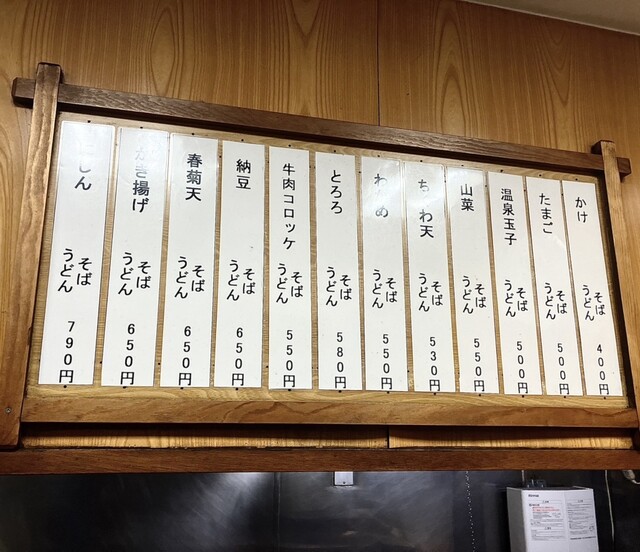 かけ そば うどん 400円
たまご そば うどん 500円
温泉玉子 そば うどん 500円
山菜 そば うどん 550円
ちくわ天 そば うどん 530円
わかめ そば うどん 550円
とろろ そば うどん 580円
牛肉コロッケ そば うどん 550円
納豆 そば うどん 650円
春菊天 そば うどん 650円
かき揚げ そば うどん 650円
しん そば うどん 790円